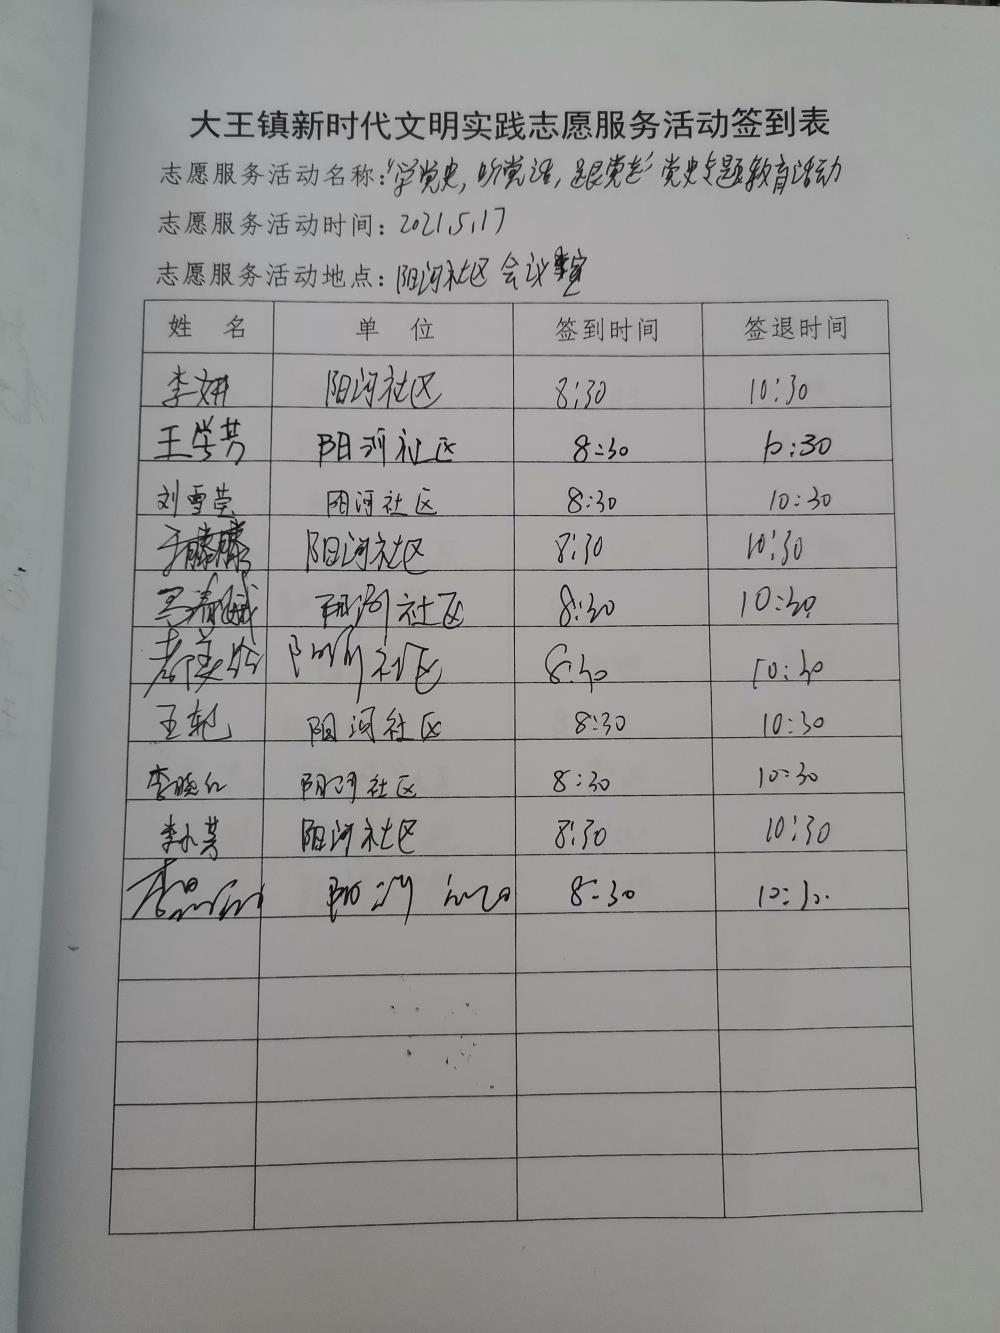 大王镇新时代文明实践志愿服务活动签到表
志愿服务活动名称:"学党史,听党话,跟党走"党史专题教育活动
志愿服务活动时间:2021.5.17
志愿服务活动地点:阳河社区 会议室
姓 名 单 位 签到时间 签退时间
李妍 阳河社区 8:30 10:30
王学芳 阳河社区 8:30 10:30
刘雪莹 阳河社区 8:30 10:30
于滕滕 阳河社区 8:30 10:30
阳河社区 8:30 10:30
阳河社区 8:30 10:30
王艳 阳河社区 8:30 10:30
李晓红 阳河社区 8:30 10:30
李小芳 阳河社区 8:30 10:30
李 阳河社区 8:30 10:30